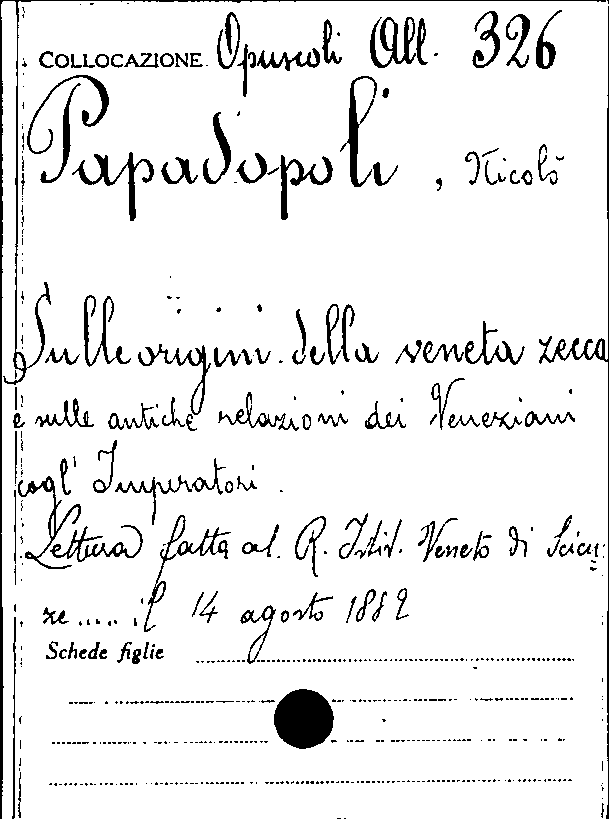 COLLOCAZIONE Opuscoli All. 326
Papadopoli, Nicolò
Sulle origini della veneta zecca
e sulle antiche relazioni dei Veneziani
cogl' Imperatori.
Lettura fatta al R. Istit. Veneto di Scien=
ze ..... il 14 agosto 1882
Schede figlie